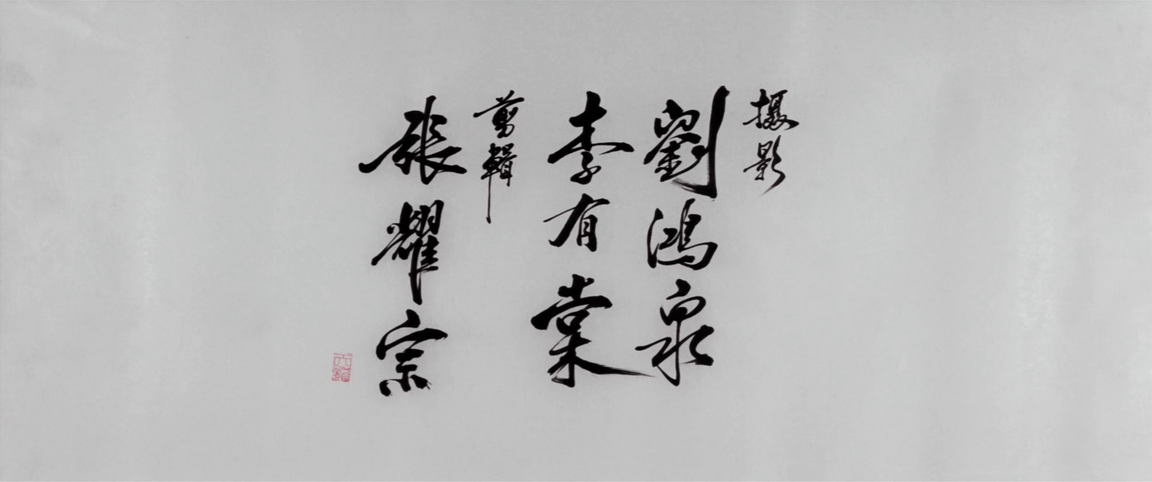 摄影
劉鴻泉
李有棠
剪輯
張耀宗